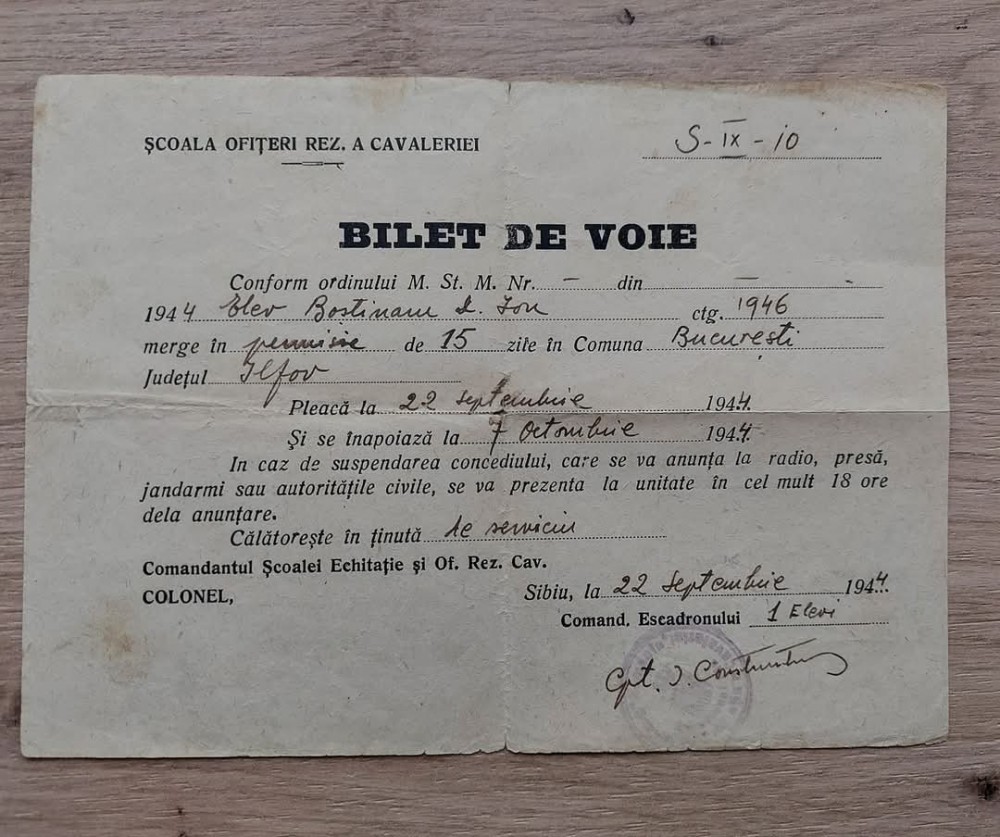 ȘCOALA OFIȚERI REZ. A CAVALERIEI
S-IX-10
BILET DE VOIE
Conform ordinului M. St. M. Nr. — din —
1944 Elev Bostinaru D. Ion ctg. 1946
merge în permisie de 15 zile în Comuna București
Județul Ilfov
Pleacă la 22 septembrie 1944.
Și se înapoiază la 7 Octombrie 1944.
In caz de suspendarea concediului, care se va anunța la radio, presă,
jandarmi sau autoritățile civile, se va prezenta la unitate în cel mult 18 ore
dela anunțare.
Călătorește în ținută de serviciu
Comandantul Școalei Echitație și Of. Rez. Cav.
COLONEL,
Sibiu, la 22 Septembrie 1944.
Comand. Escadronului 1 Elevi
Cpt. I.